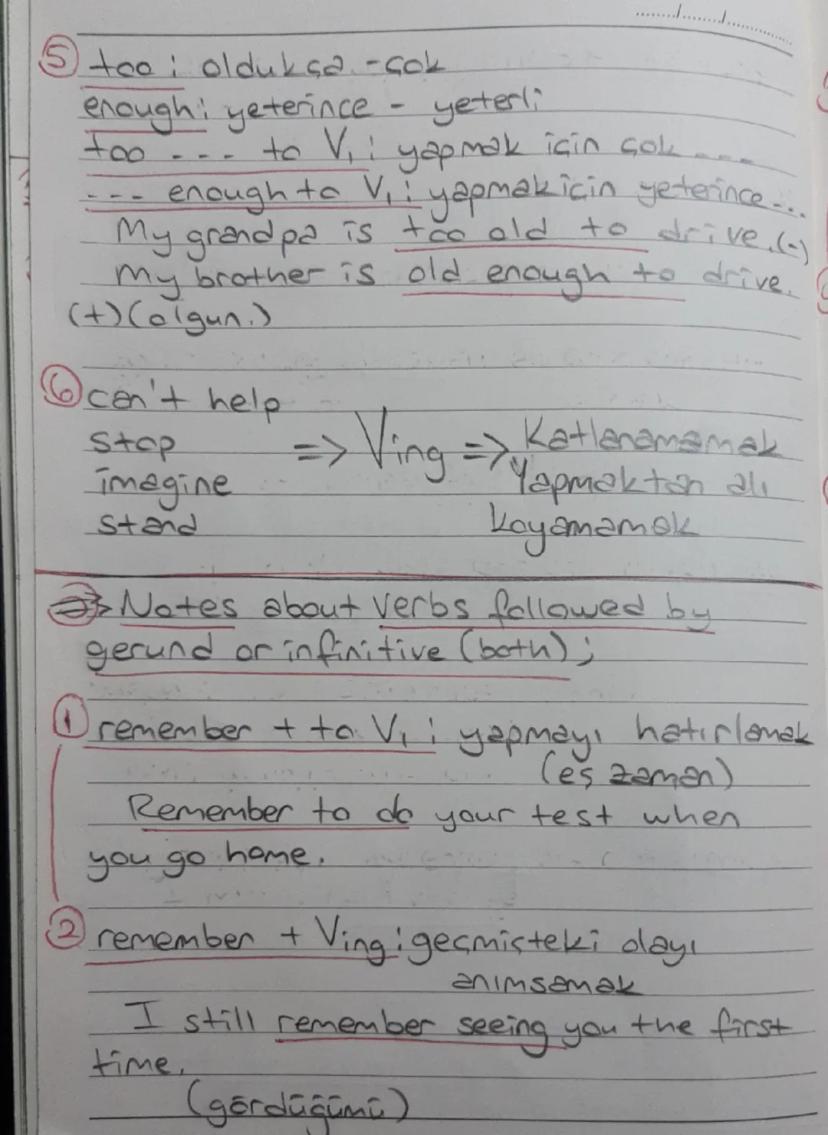 ...../...../.......
⑤ too : oldukça - çok
enough : yeterince - yeterli
too --- to V₁ : yapmak için çok ---
--- enough to V₁ : yapmak için yeterince...
My grandpa is too old to drive. (-)
My brother is old enough to drive.
(+) (olgun.)
⑥ can't help
stop => Ving => Katlanamamak
imagine Yapmaktan alı
stand koyamamak
=> Notes about verbs followed by
gerund or infinitive (both) ;
① remember + to V₁ : yapmayı hatırlamak
(eş zaman)
Remember to do your test when
you go home.
② remember + Ving : geçmişteki olayı
anımsamak
I still remember seeing you the first
time.
(gördüğümü)